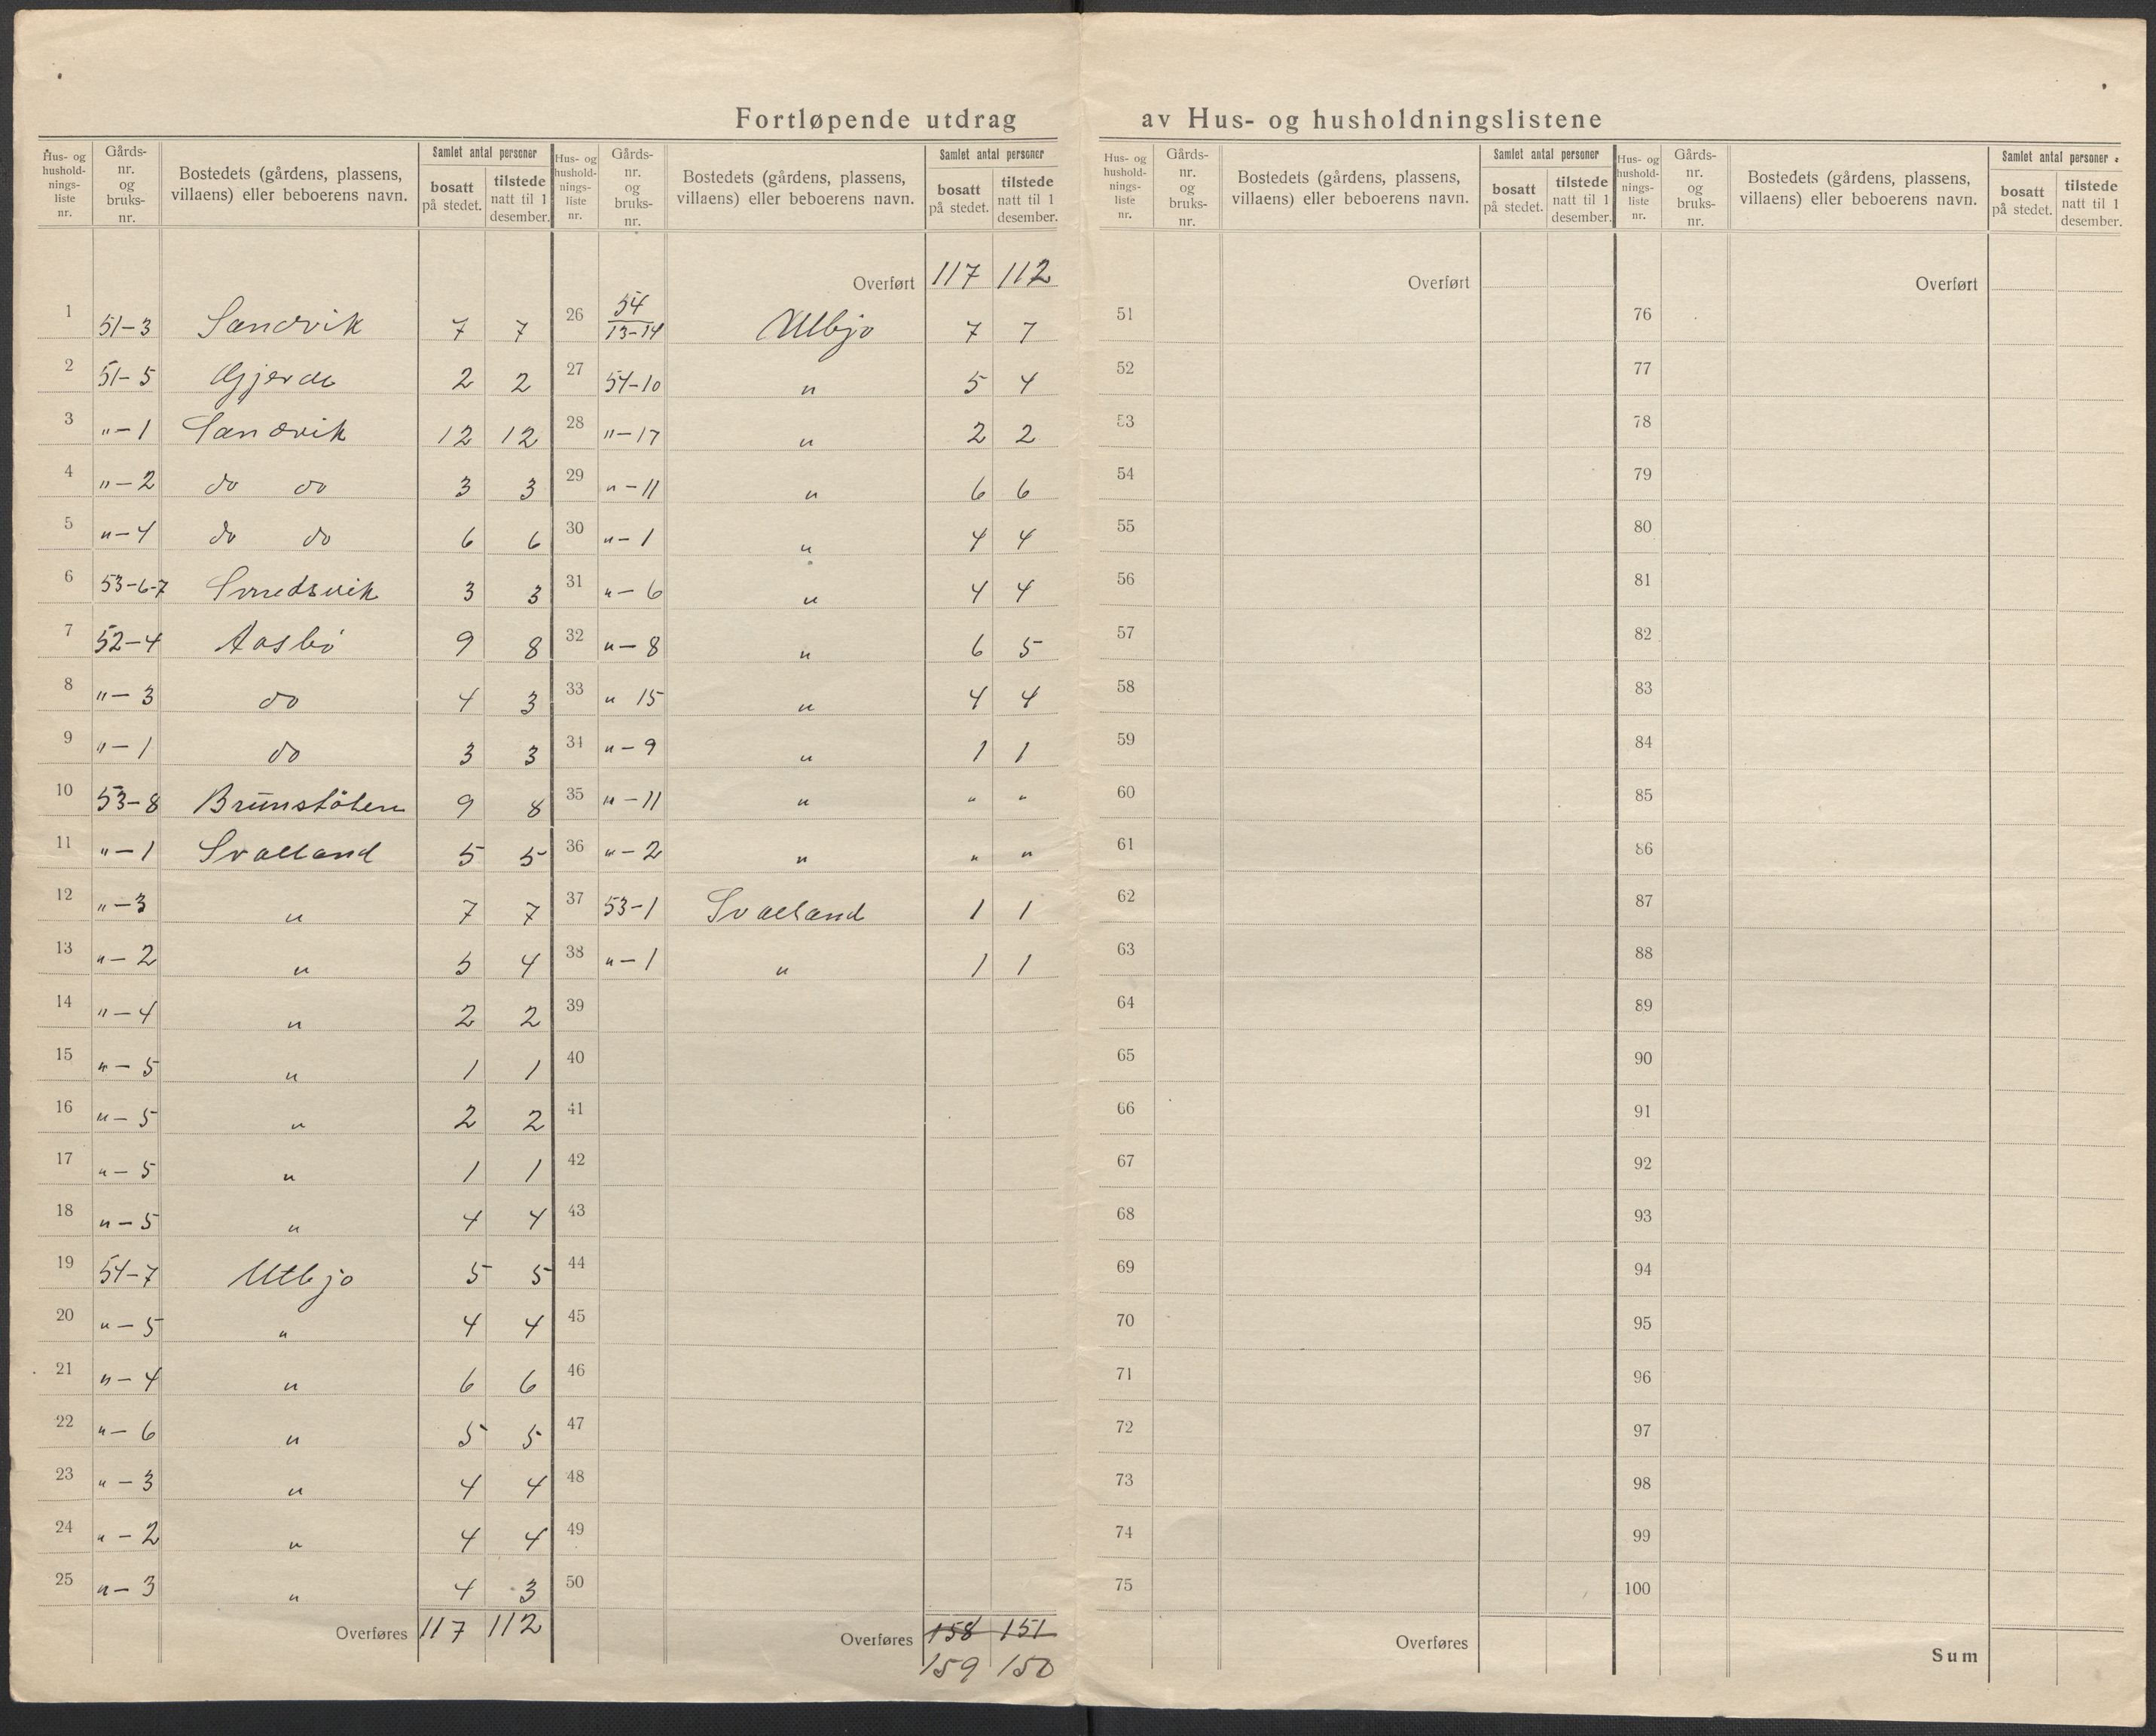 Fortløpende utdrag av Hus- og husholdningslistene
Hus- og hushold-nings-liste nr. Gårds-nr. og bruks-nr. Bostedets (gårdens, plassens, villaens) eller beboerens navn. Samlet antal personer bosatt på stedet. tilstede natt til 1 desember.
1 51-3 Sandvik 7 7
2 51-5 Gjerde 2 2
3 "-1 Sandvik 12 12
4 "-2 do do 3 3
5 "-4 do do 6 6
6 53-6-7 Smedsvik 3 3
7 52-4 Aasbö 9 8
8 "-3 do 4 3
9 "-1 do 3 3
10 53-8 Brunstölen 9 8
11 "-1 Svaeland 5 5
12 "-3 " 7 7
13 "-2 " 5 4
14 "-4 " 2 2
15 "-5 " 1 1
16 "-5 " 2 2
17 "-5 " 1 1
18 "-5 " 4 4
19 54-7 Utbjo 5 5
20 "-5 " 4 4
21 "-4 " 6 6
22 "-6 " 5 5
23 "-3 " 4 4
24 "-2 " 4 4
25 "-3 " 4 3
Overføres 117 112
Hus- og hushold-nings-liste nr. Gårds-nr. og bruks-nr. Bostedets (gårdens, plassens, villaens) eller beboerens navn. Samlet antal personer bosatt på stedet. tilstede natt til 1 desember.
Overført 117 112
26 54 13-14 Utbjo 7 7
27 54-10 " 5 4
28 "-17 " 2 2
29 "-11 " 6 6
30 "-1 " 4 4
31 "-6 " 4 4
32 "-8 " 6 5
33 " 15 " 4 4
34 "-9 " 1 1
35 "-11 " " "
36 "-2 " " "
37 53-1 Svaeland 1 1
38 "-1 " 1 1
39
40
41
42
43
44
45
46
47
48
49
50
Overføres 158 151
159 150
Hus- og hushold-nings-liste nr. Gårds-nr. og bruks-nr. Bostedets (gårdens, plassens, villaens) eller beboerens navn. Samlet antal personer bosatt på stedet. tilstede natt til 1 desember.
Overført
51
52
53
54
55
56
57
58
59
60
61
62
63
64
65
66
67
68
69
70
71
72
73
74
75
Overføres
Hus- og hushold-nings-liste nr. Gårds-nr. og bruks-nr. Bostedets (gårdens, plassens, villaens) eller beboerens navn. Samlet antal personer bosatt på stedet. tilstede natt til 1 desember.
Overført
76
77
78
79
80
81
82
83
84
85
86
87
88
89
90
91
92
93
94
95
96
97
98
99
100
Sum